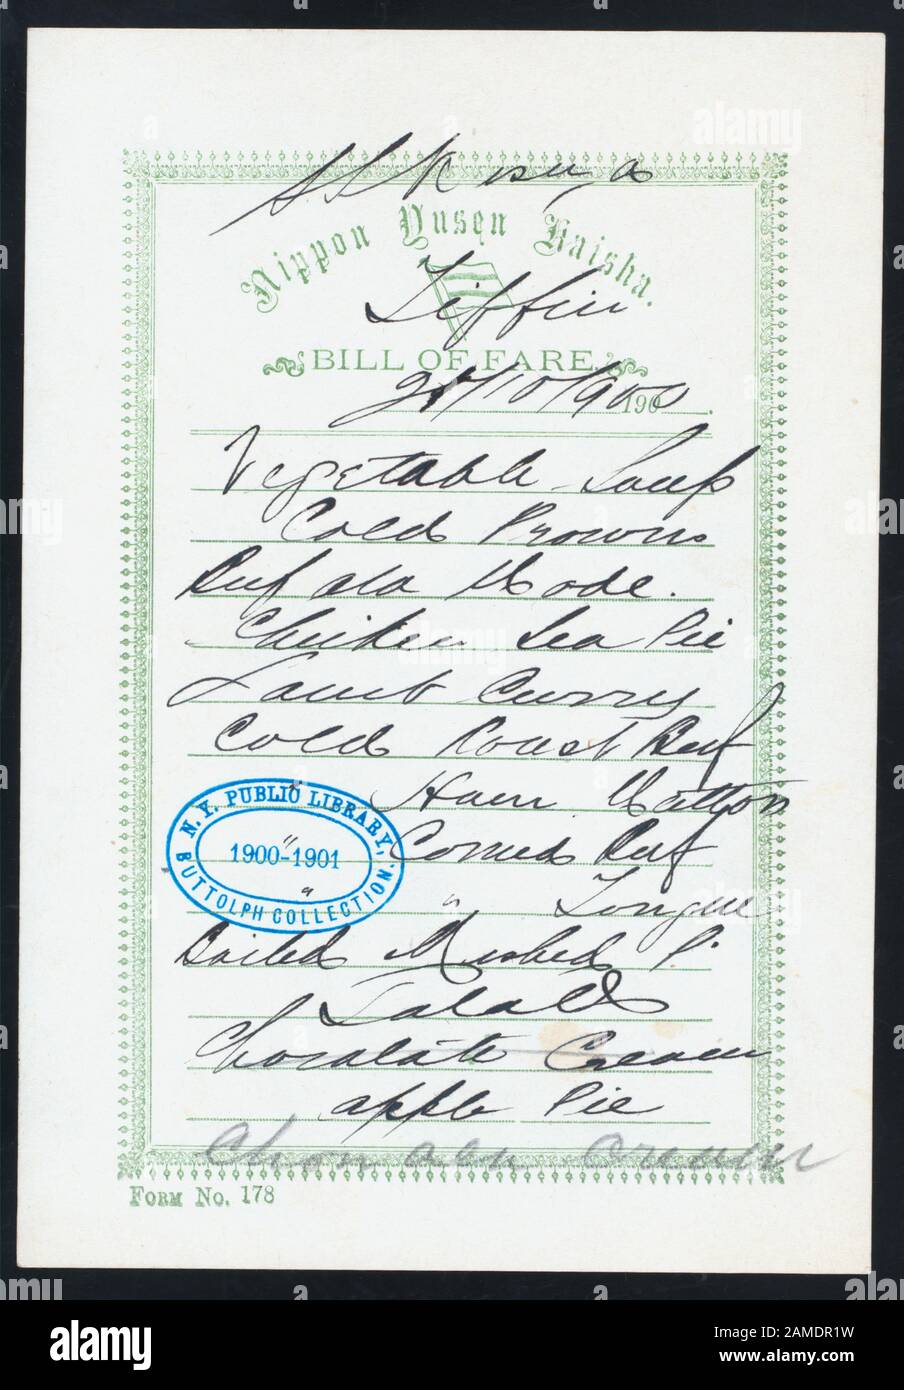 SS Kosuga
Nippon Yusen Kaisha.
Tiffin
BILL OF FARE.
/10/1900 190 .
Vegetable Soup
Cold Prowns
Beef ala Mode.
Chicken Sea Pie
Lamb Curry
Cold Roast Beef
" Ham Mutton
" Corned Beef
" Tongue
Boiled Mashed P.
Salad
Chocolate Cream
apple Pie
Cream
N.Y. PUBLIC LIBRARY,
1900-1901
BUTTOLPH COLLECTION.
FORM NO. 178
alamy
Image ID: 2AMDR1W
www.alamy.com